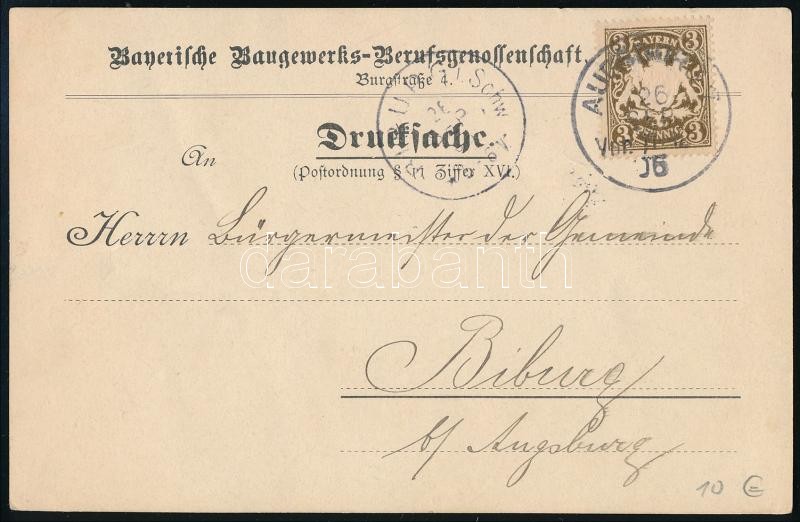 Bayerische Baugewerks-Berufsgenossenschaft,
Burgstraße 4.
Drucksache.
(Postordnung § 11 Ziffer XVI.)
An
Herrrn Bürgermeister der Gemeinde
Biburg
b/ Augsburg
3 BAYERN 3
3 PFENNIG 3
26
SEP
06
Schw
darabanth
10 €